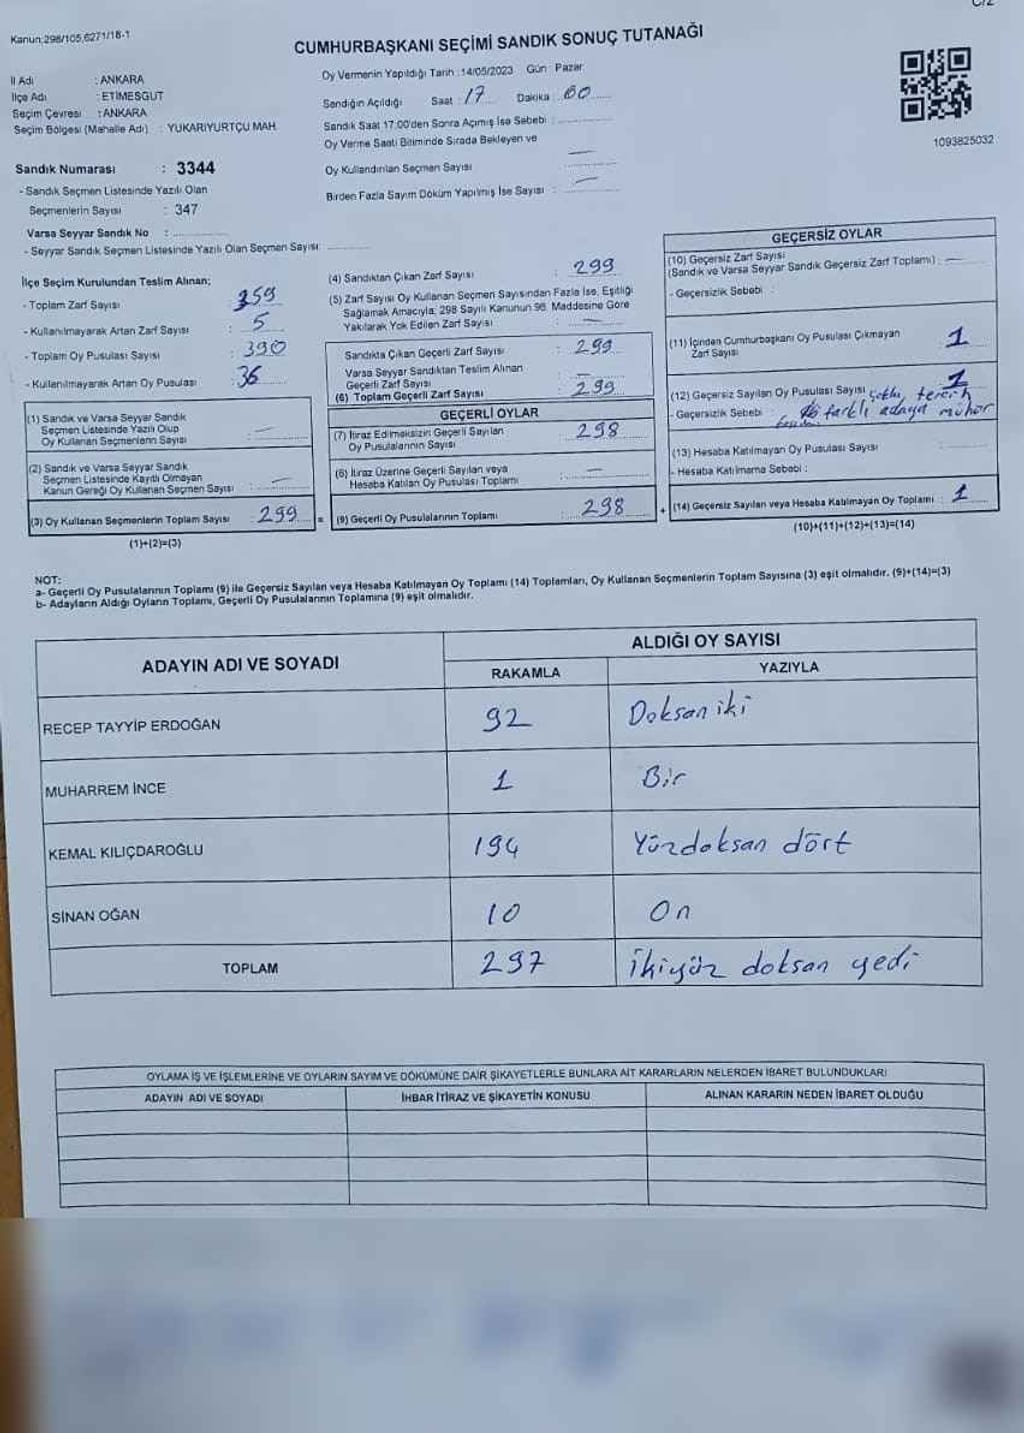 Kanun;298/105,6271/18-1
CUMHURBAŞKANI SEÇİMİ SANDIK SONUÇ TUTANAĞI
İl Adı : ANKARA
İlçe Adı : ETİMESGUT
Seçim Çevresi : ANKARA
Seçim Bölgesi (Mahalle Adı) : YUKARIYURTÇU MAH.
Oy Vermenin Yapıldığı Tarih :14/05/2023 Gün : Pazar
Sandığın Açıldığı Saat : 17 Dakika : 60
Sandık Saat 17:00'den Sonra Açılmış İse Sebebi :
Oy Verme Saati Bitiminde Sırada Bekleyen ve
Oy Kullandırılan Seçmen Sayısı —
Birden Fazla Sayım Döküm Yapılmış İse Sayısı : —
1093825032
Sandık Numarası : 3344
- Sandık Seçmen Listesinde Yazılı Olan
Seçmenlerin Sayısı : 347
Varsa Seyyar Sandık No :
- Seyyar Sandık Seçmen Listesinde Yazılı Olan Seçmen Sayısı:
İlçe Seçim Kurulundan Teslim Alınan;
- Toplam Zarf Sayısı : 359
- Kullanılmayarak Artan Zarf Sayısı : 5
- Toplam Oy Pusulası Sayısı : 390
- Kullanılmayarak Artan Oy Pusulası : 36
(1) Sandık ve Varsa Seyyar Sandık
Seçmen Listesinde Yazılı Olup
Oy Kullanan Seçmenlerin Sayısı : —
(2) Sandık ve Varsa Seyyar Sandık
Seçmen Listesinde Kayıtlı Olmayan
Kanun Gereği Oy Kullanan Seçmen Sayısı : —
(3) Oy Kullanan Seçmenlerin Toplam Sayısı : 299 =
(1)+(2)=(3)
(4) Sandıktan Çıkan Zarf Sayısı : 299
(5) Zarf Sayısı Oy Kullanan Seçmen Sayısından Fazla İse, Eşitliği
Sağlamak Amacıyla; 298 Sayılı Kanunun 98. Maddesine Göre
Yakılarak Yok Edilen Zarf Sayısı : —
Sandıkta Çıkan Geçerli Zarf Sayısı : 299
Varsa Seyyar Sandıktan Teslim Alınan
Geçerli Zarf Sayısı : —
(6) Toplam Geçerli Zarf Sayısı : 299
GEÇERLİ OYLAR
(7) İtiraz Edilmeksizin Geçerli Sayılan
Oy Pusulalarının Sayısı : 298
(8) İtiraz Üzerine Geçerli Sayılan veya
Hesaba Katılan Oy Pusulası Toplamı : —
(9) Geçerli Oy Pusulalarının Toplamı : 298 +
GEÇERSİZ OYLAR
(10) Geçersiz Zarf Sayısı
(Sandık ve Varsa Seyyar Sandık Geçersiz Zarf Toplamı) : —
- Geçersizlik Sebebi :
(11) İçinden Cumhurbaşkanı Oy Pusulası Çıkmayan
Zarf Sayısı 1
(12) Geçersiz Sayılan Oy Pusulası Sayısı : 1 çoklu tercih
- Geçersizlik Sebebi : farklı adaya mühür
(13) Hesaba Katılmayan Oy Pusulası Sayısı :
- Hesaba Katılmama Sebebi :
(14) Geçersiz Sayılan veya Hesaba Katılmayan Oy Toplamı : 1
(10)+(11)+(12)+(13)=(14)
NOT:
a- Geçerli Oy Pusulalarının Toplamı (9) ile Geçersiz Sayılan veya Hesaba Katılmayan Oy Toplamı (14) Toplamları, Oy Kullanan Seçmenlerin Toplam Sayısına (3) eşit olmalıdır. (9)+(14)=(3)
b- Adayların Aldığı Oyların Toplamı, Geçerli Oy Pusulalarının Toplamına (9) eşit olmalıdır.
ADAYIN ADI VE SOYADI
ALDIĞI OY SAYISI
RAKAMLA YAZIYLA
RECEP TAYYİP ERDOĞAN 92 Doksan iki
MUHARREM İNCE 1 Bir
KEMAL KILIÇDAROĞLU 194 Yüzdoksan dört
SİNAN OĞAN 10 On
TOPLAM 297 İkiyüz doksan yedi
OYLAMA İŞ VE İŞLEMLERİNE VE OYLARIN SAYIM VE DÖKÜMÜNE DAİR ŞİKAYETLERLE BUNLARA AİT KARARLARIN NELERDEN İBARET BULUNDUKLARI
ADAYIN ADI VE SOYADI İHBAR İTİRAZ VE ŞİKAYETİN KONUSU ALINAN KARARIN NEDEN İBARET OLDUĞU